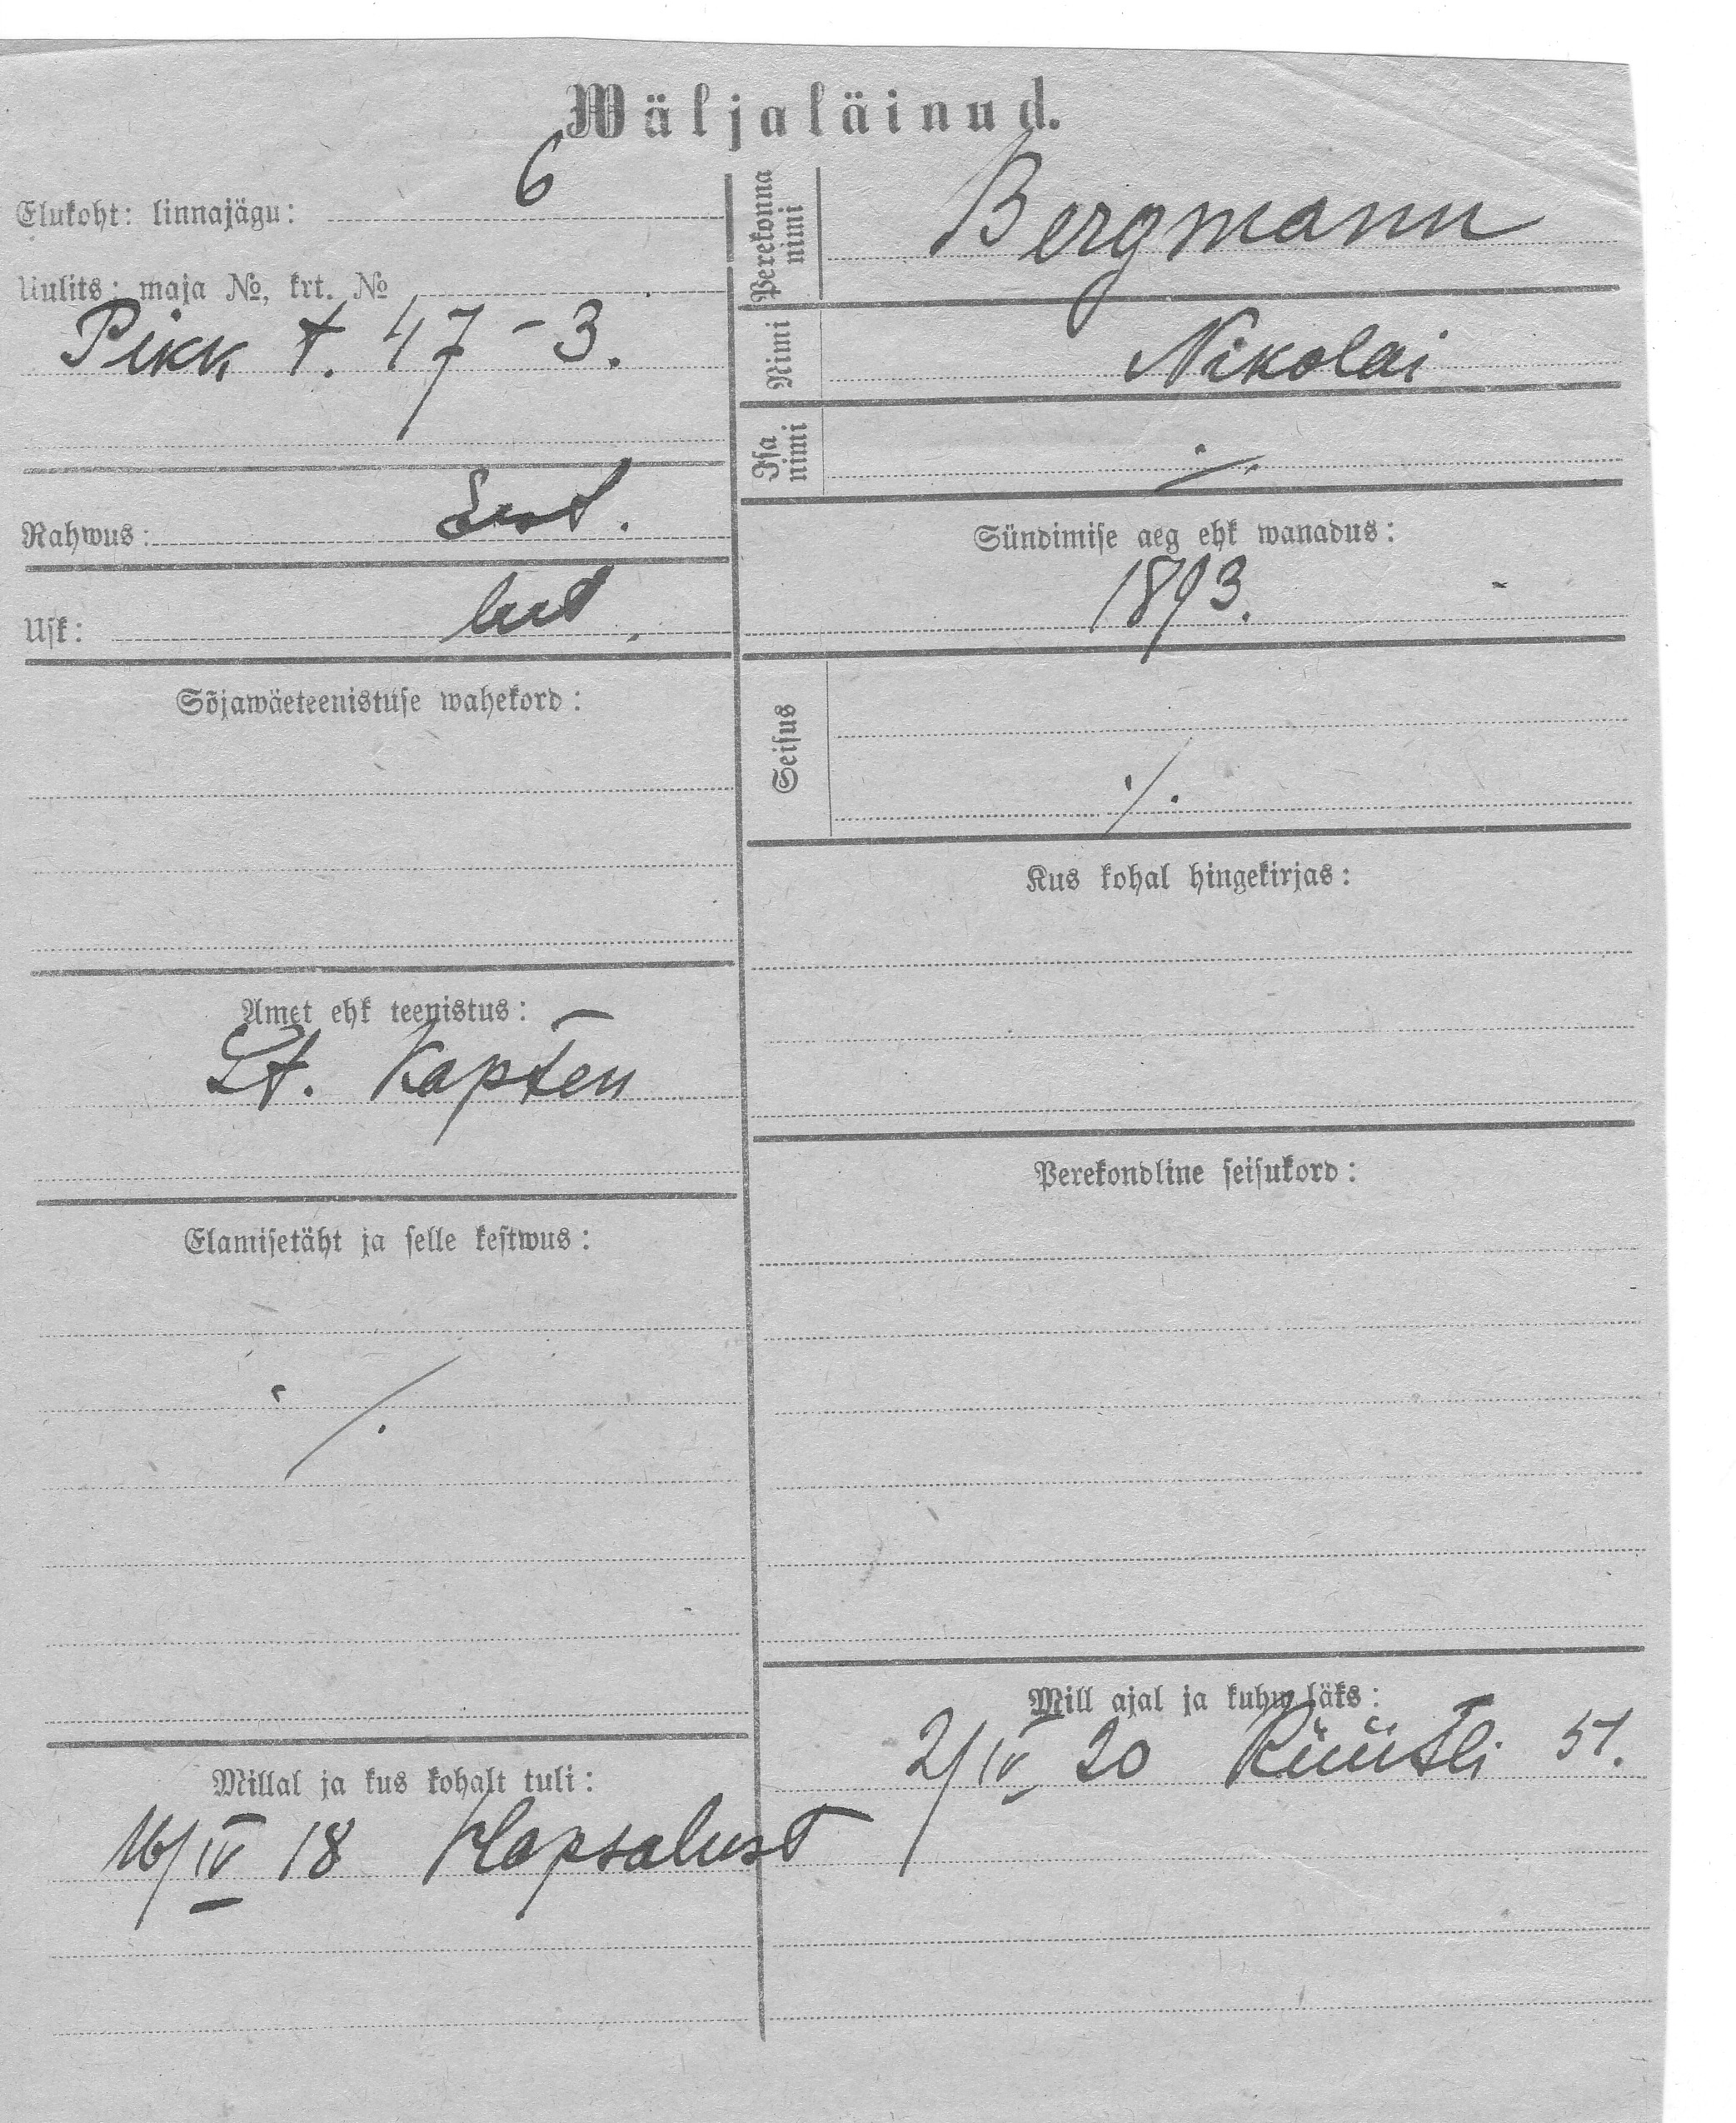 Wäljaläinud.
Elukoht: linnajägu: 6
Uulits: maja №, krt. №
Pikk t. 47 - 3.
Rahwus: Eest.
Usk: lut.
Sõjawäeteenistuse wahekord:
Amet ehk teenistus:
Lt. Kapten
Elamisetäht ja selle kestwus:
·/.
Millal ja kus kohalt tuli:
16/IV 18 Hapsalust
Perekonna nimi
Bergmann
Nimi
Nikolai
Isa nimi
·/.
Sündimise aeg ehk wanadus:
1893.
Seisus
·/.
Kus kohal hingekirjas:
Perekondline seisukord:
Mill ajal ja kuhu läks:
2/IV 20 Rüütli 51.